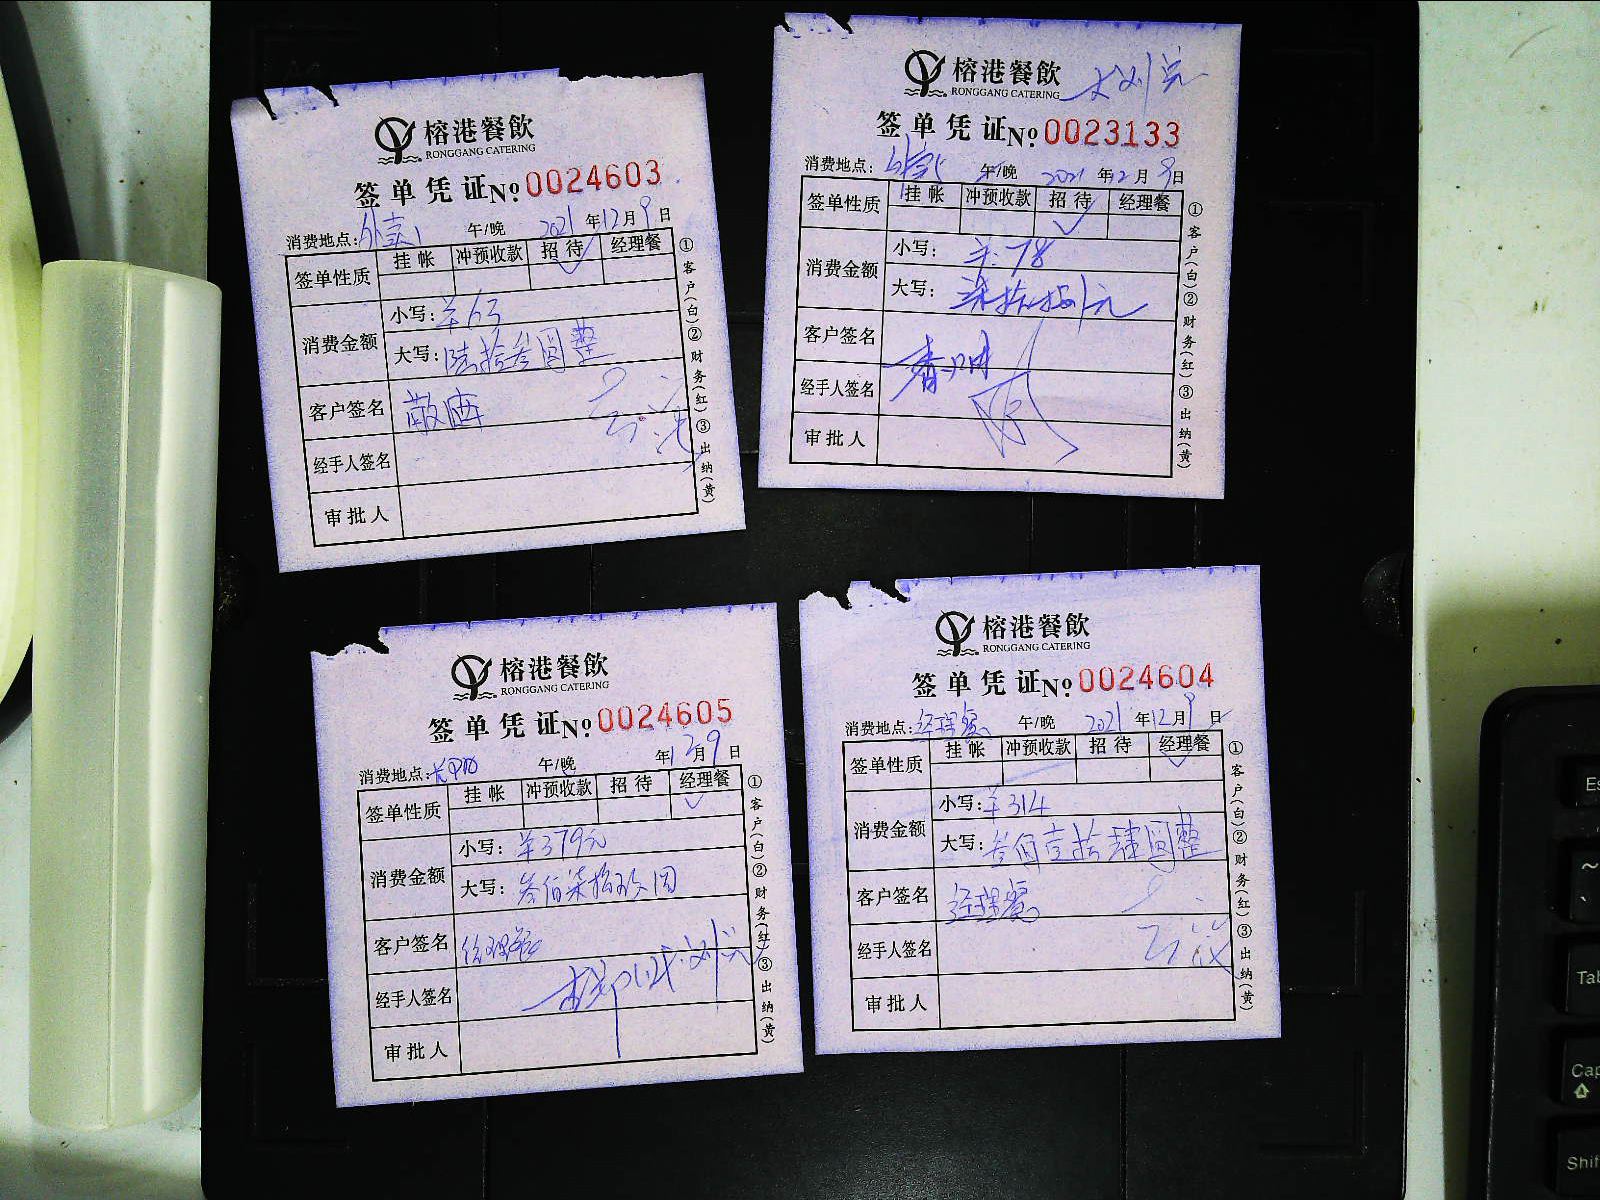 榕港餐飲
RONGGANG CATERING
签单凭证 No 0024603
消费地点: 午/晚 2021年12月9日
签单性质 挂帐 冲预收款 招待 经理餐
消费金额
小写: ¥63
大写: 陆拾叁圆整
客户签名
经手人签名
审批人
①客户(白)②财务(红)③出纳(黄)
榕港餐飲
RONGGANG CATERING
签单凭证 No 0023133
消费地点: 午/晚 2021年12月9日
签单性质 挂帐 冲预收款 招待 经理餐
消费金额
小写: ¥: 78
大写: 柒拾捌元
客户签名
经手人签名
审批人
①客户(白)②财务(红)③出纳(黄)
榕港餐飲
RONGGANG CATERING
签单凭证 No 0024605
消费地点: 午/晚 年12月9日
签单性质 挂帐 冲预收款 招待 经理餐
消费金额
小写: ¥379元
大写: 叁佰柒拾玖圆
客户签名 经理餐
经手人签名
审批人
①客户(白)②财务(红)③出纳(黄)
榕港餐飲
RONGGANG CATERING
签单凭证 No 0024604
消费地点: 经理餐 午/晚 2021年12月9日
签单性质 挂帐 冲预收款 招待 经理餐
消费金额
小写: ¥314
大写: 叁佰壹拾肆圆整
客户签名 经理餐
经手人签名
审批人
①客户(白)②财务(红)③出纳(黄)
~
Tab
Shif